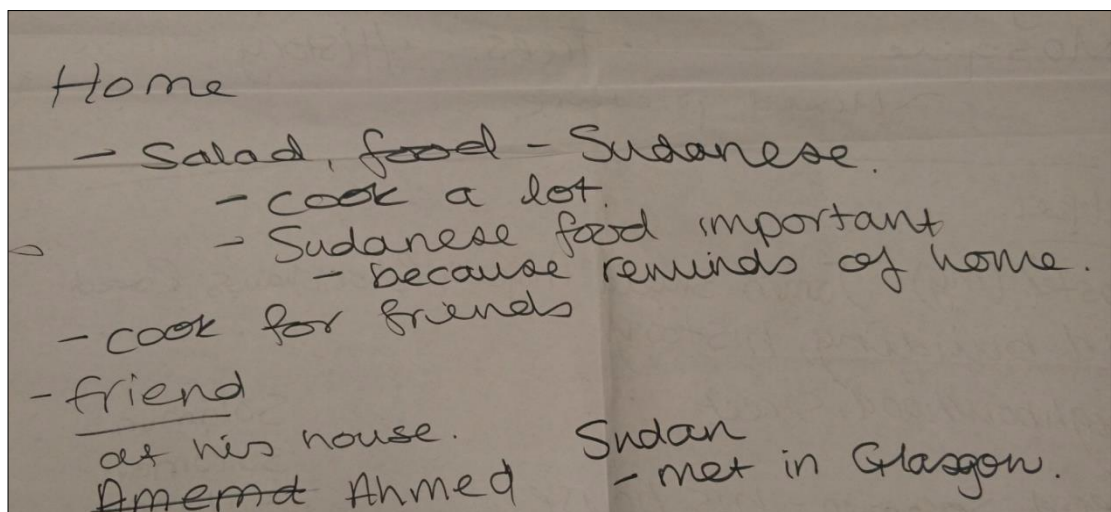 Home
- Salad, food - Sudanese.
- cook a lot.
- Sudanese food important
- because reminds of home.
- cook for friends
- friend
at his house.
Sudan
- met in Glasgow.
Amemd Ahmed